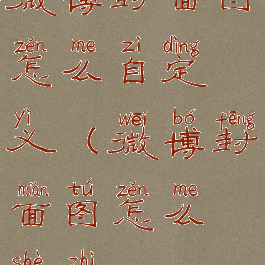 微博封面图
zěn me zì dìng
怎么自定
yì wēi bó fēng
义（微博封
miàn tú zěn me
面图怎么
shè zhì